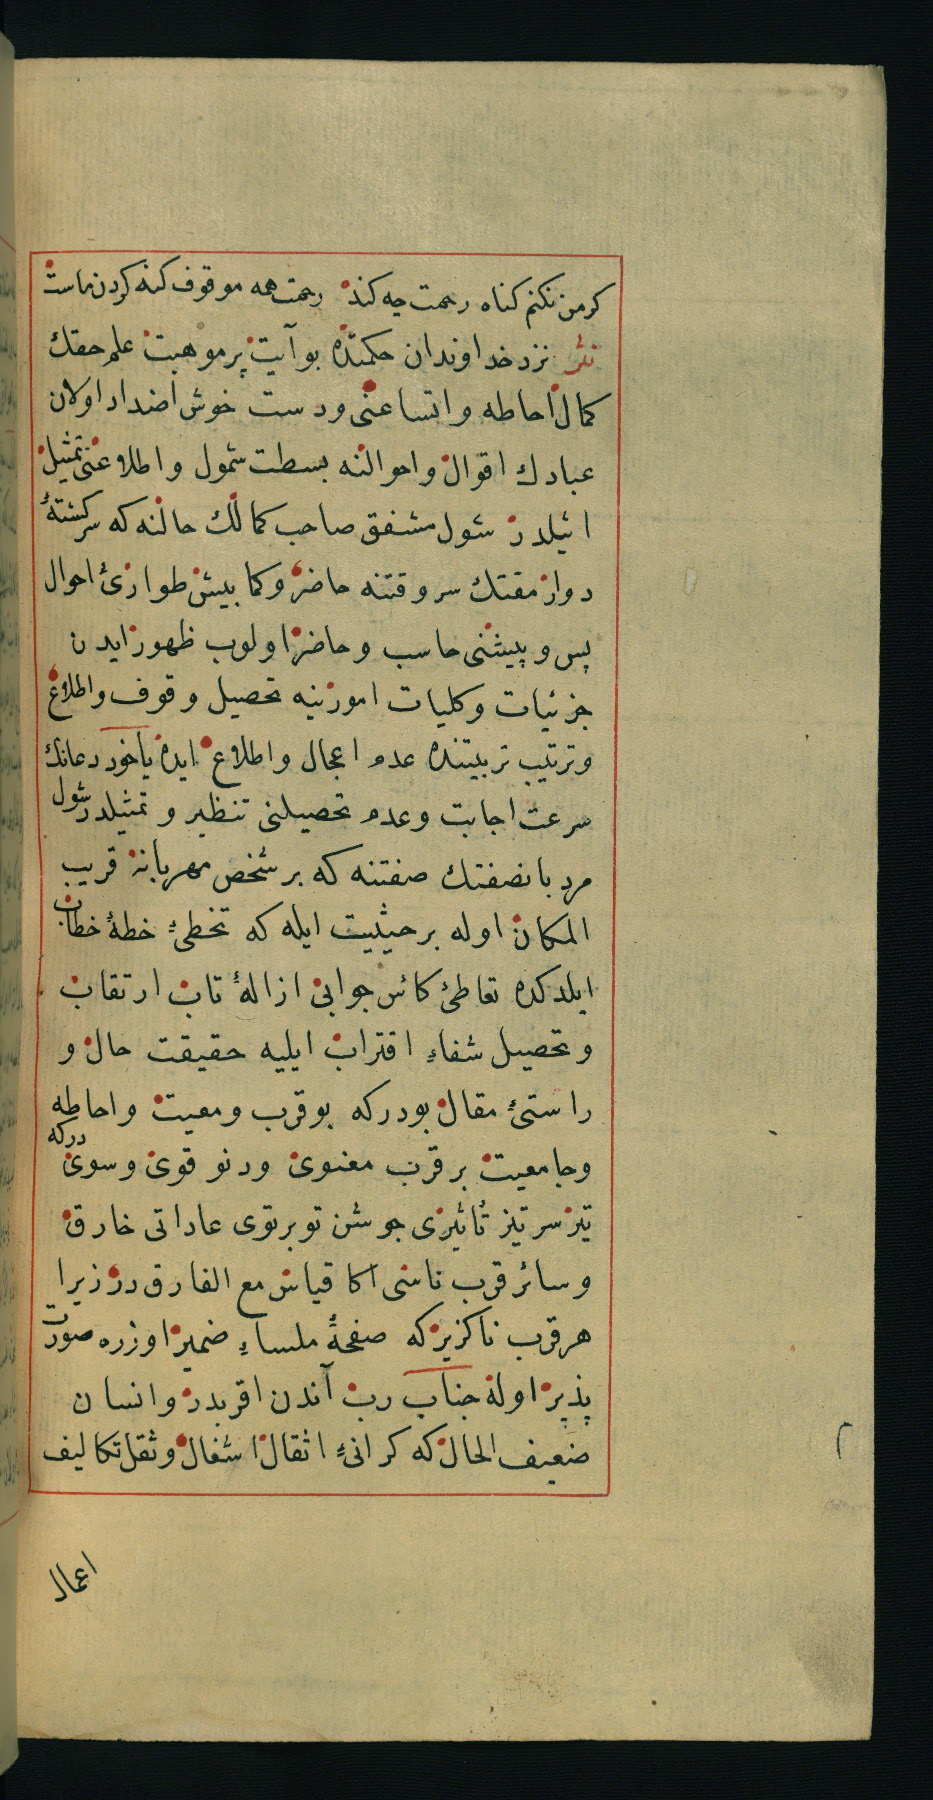 كر من نكنم كناه رحمت چه كند رحمت همه موقوف كنه كردن ماست
نثر نزد خداوندان حكمتده بو آيت پر موهبت علم حقك
كمال احاطه و اتساعنى و دست خوش اضداد اولان
عبادك اقوال و احوالنه بسطت شمول و اطلاعنى تمثيل
ايلدر شول مشفق صاحب كمالك حالنه كه سركشتۀ
سروقتنه حاضر و كما بيش طوارئ احوال
پس و پيشنى حاسب و حاضر اولوب ظهور ايدن
جزئيات و كليات امورينه تحصيل وقوف و اطلاع
و ترتيب تربيتنده عدم اعجال و اطلاع ايده ياخود دعانك
سرعت اجابت و عدم تحصيلنى تنظير و تمثيلدر شول
مرد با نصفتك صفتنه كه بر شخص مهربانه قريب
المكان اوله بر حيثيت ايله كه تخطئ خطۀ خطاب
ايلدكده تعاطئ كائس جوابى ازالۀ تاب ارتقاب
و تحصيل شفاء اقتراب ايليه حقيقت حال و
راستئ مقال بودركه بو قرب و معيت و احاطه
و جامعيت بر قرب معنوى و دنو قوى و سوى دركه
تيز سر تيز تأثيرى جوشن تو بر توى عاداتى خارق
و سائر قرب ناسى اكا قياس مع الفارق در زيرا
هر قرب ناكزير كه صفحۀ ملساء ضمير اوزره صورت
پذير اوله جناب رب آندن اقربدر و انسان
ضعيف الحال كه كرانئ اثقال اشغال و ثقل تكاليف
اعمال